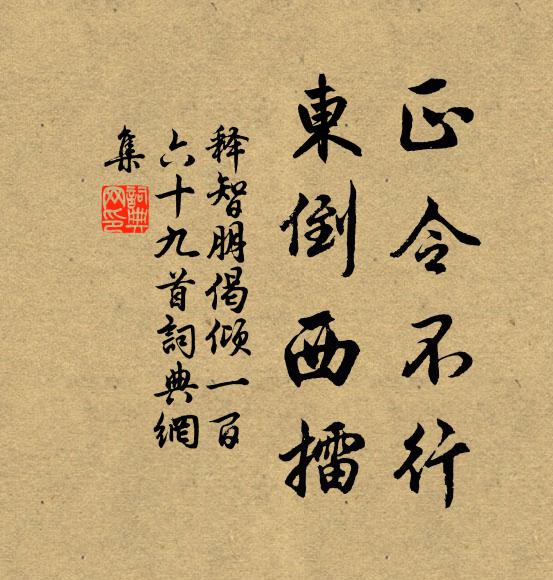 正令不行
東倒西擂
释智朋偈倾一百
六十九首詞典網
集
詞典
网印